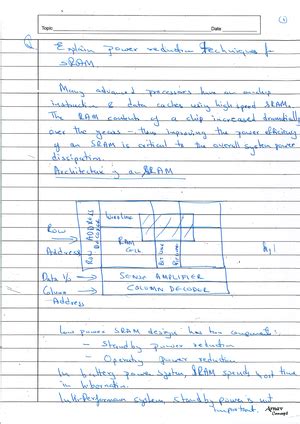 Topic Date
(1)
Q Explain power reduction Techniques for
SRAM.
Many advanced processors have an onchip
instruction & data caches using high speed SRAMs.
The RAM contents of a chip increased dramatically
over the years - thus improving the power efficiency
of an SRAM is critical to the overall system power
dissipation.
Architecture of an SRAM
Wordline
ROW ADDRESS
DECODER
Row
Address
RAM
Cell
Bitline
SENSE AMPLIFIER
Data I/o
COLUMN DECODER
Column
Address
low power SRAM design has two components:
- Standby power reduction
- Operating power reduction
In battery power system, SRAM spends most time
in hibernation.
In Hi-Performance system, standby power is not
important.
Arnav
Concept